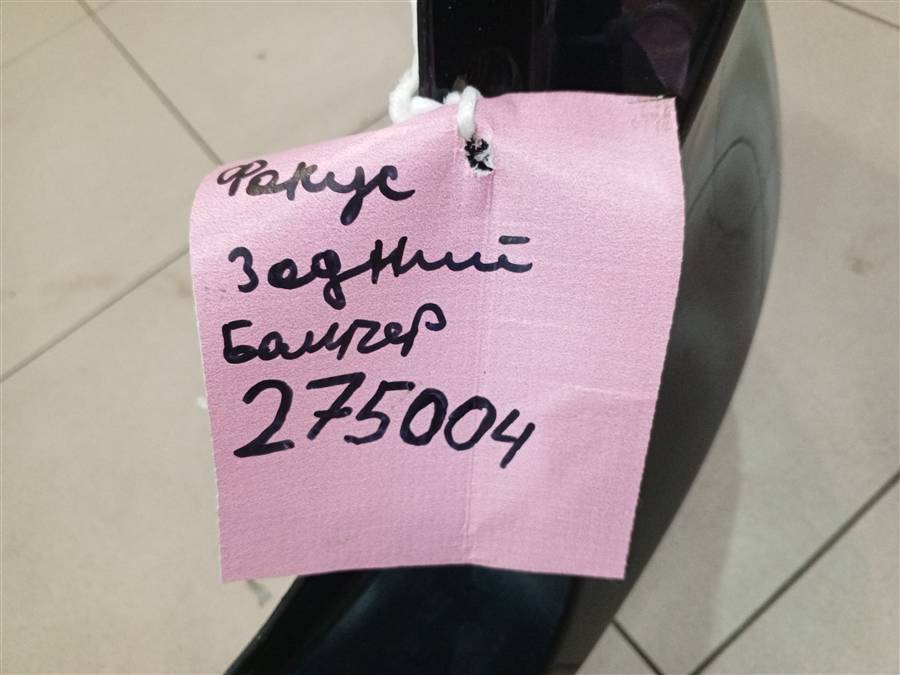 Фокус
Задний
Бампер
275004